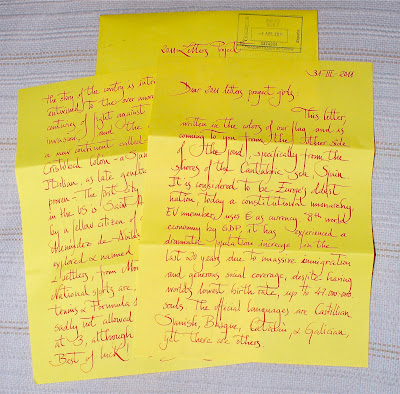 2011 Letters Project
31-III-2011
Dear 2011 letters project girls:
This letter,
written in the colors of our flag, and is
coming to you from the other side
of the pond, specifically from the
shores of the Cantabric Sea, Spain.
It is considered to be Europe's oldest
nation, today a constitutional monarchy
EU member, uses € as currency, 8th world
economy by GDP, it has experienced a
dramatic population increase in the
last 20 years due to massive immigration
and generous social coverage, despite having
world's lowest birth rate, up to 47.000.000
souls. The official languages are Castilian
Spanish, Basque, Catalan, & Galician,
yet there are others.
the story of the country is inter
entwined to the over
centuries of fight against
invasion, and the
a new continent called
Cristobal Colon - a
Italian, as late genetic
proven - The first City
in the US is Saint
by a fellow citizen of
Menendez de
explored & named
Seattle, from
National sports are,
tennis & Formula 1
sadly not allowed
at 3, although
Best of luck!